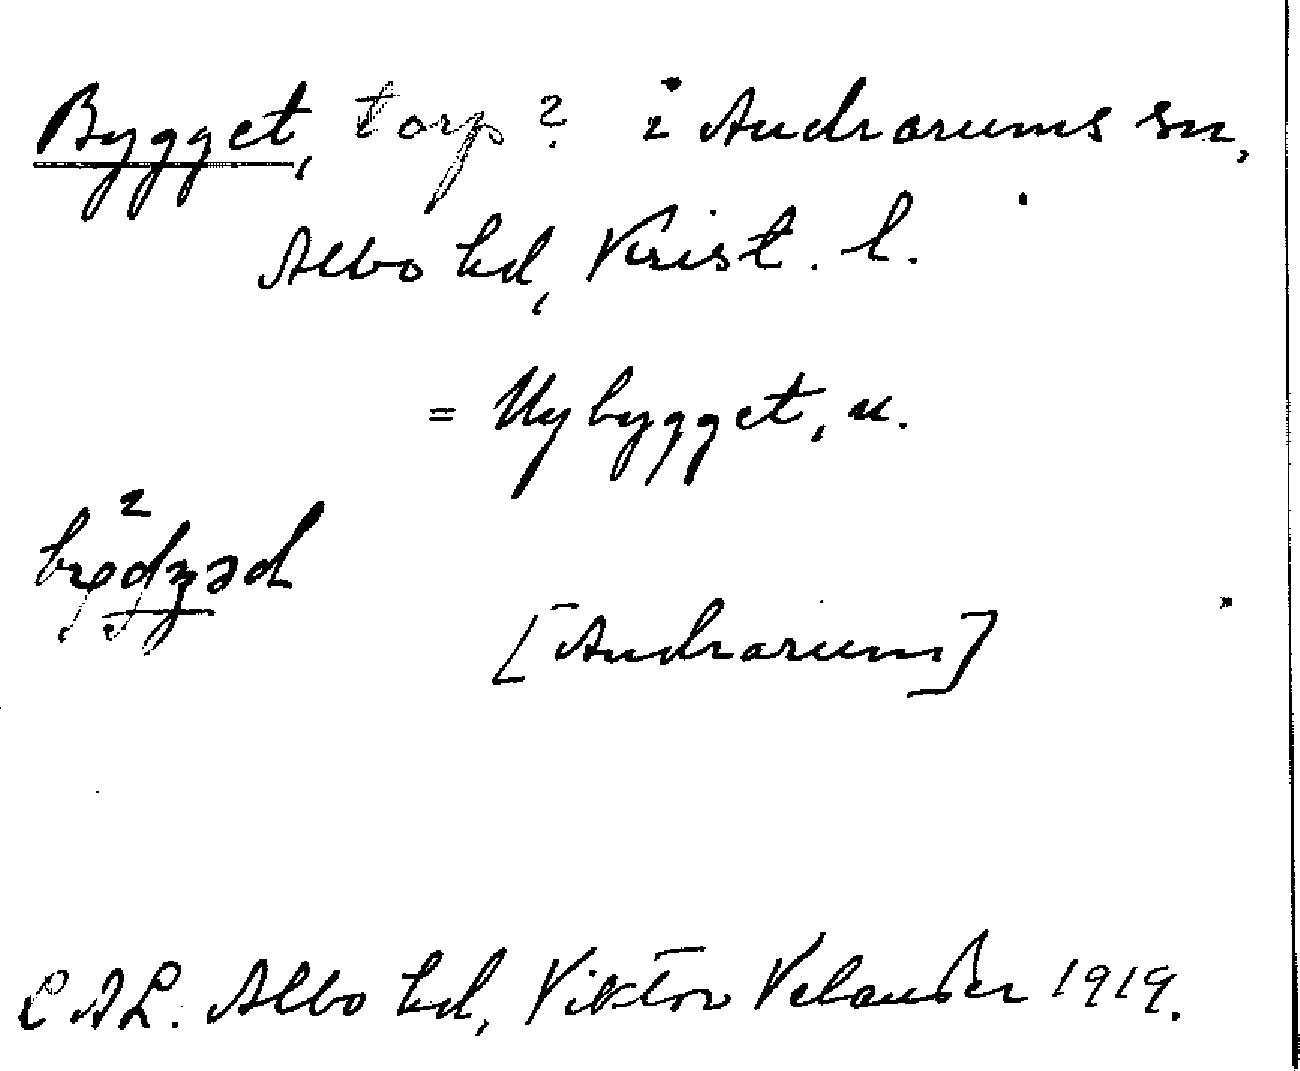 Bygget, torp? i Andrarums sn,
Albo hd, Krist. l.
= Nybygget, n.
[Andrarum]
LAL. Albo hd, Viktor Velander 1919.